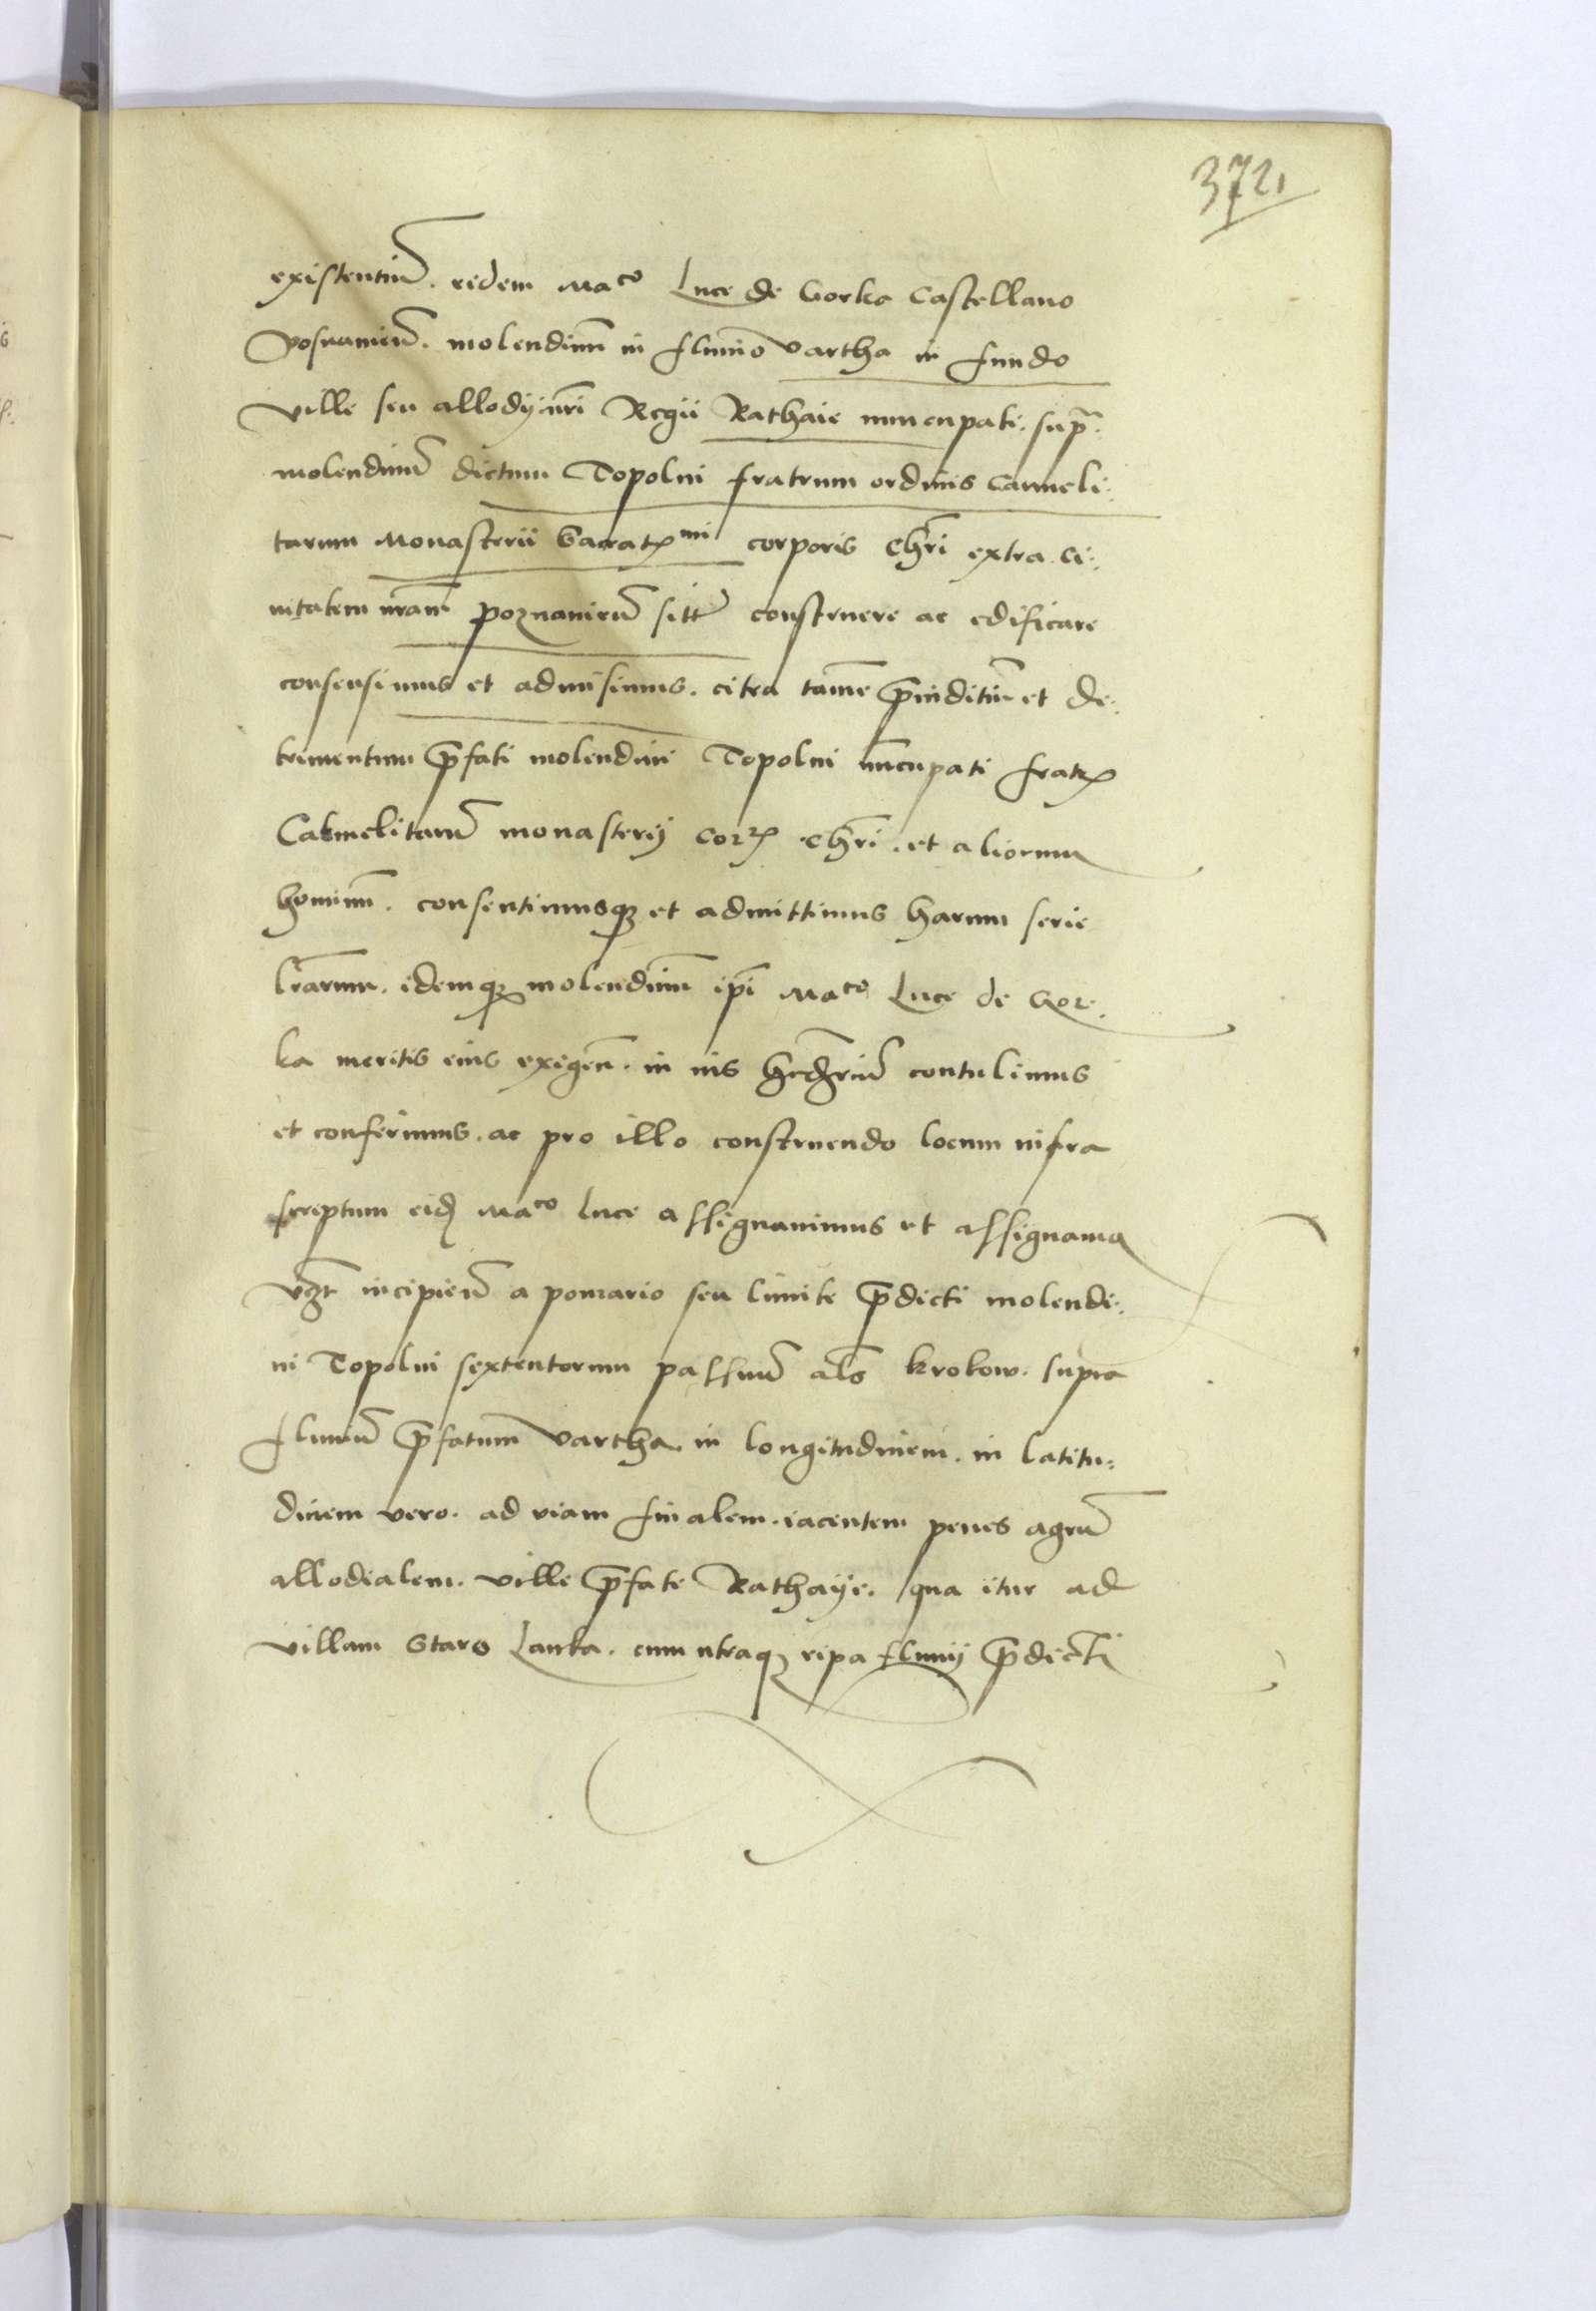 372
existentiũ. eidem Maco Luce de Gorka Castellano
Posnanieñ. molendinũ in fluuio Vartha in fundo
Ville seu allodij nr̃i Regii Rathaie nuncupati. supra
molendinũ dictum Topolni fratrum ordinis Carmeli:
tarum Monasterii Sacratꝝmi corporis Chr̃i extra ci:
uitatem nr̃am Poznanieñ sitĩ construere ac edificare
consensimus et admisimus. citra tamẽ p̃iuditiũ et de:
trimentum p̃fati molendini Topolni nũcupati fratꝝ
Carmelitarũ monasterij Corꝑis Chr̃i. et aliorum
hominũ. consentimusqꝫ et admittimus harum serie
lr̃arum. idemqꝫ molendinũ ip̃i Maco Luce de Gor:
ka meritis eius exigeñ. in ius hereditariũ contulimus
et conferimus. ac pro illo construendo locum infra
scriptum eidẽ Maco Luce assignauimus et assignamꝰ
vꝫt incipieñ a pomario seu limite p̃dicti molendi:
ni Topolni sexcentorum passuũ al̃s krokow. supra
fluuiũ p̃fatum Vartha in longitudinem. in latitu:
dinem vero. ad viam finalem. iacentem penes agrũ
allodialem. ville p̃fate Rathaije. qua itur ad
villam Staro Lanka. cum utraqꝫ ripa fluuij p̃dicti